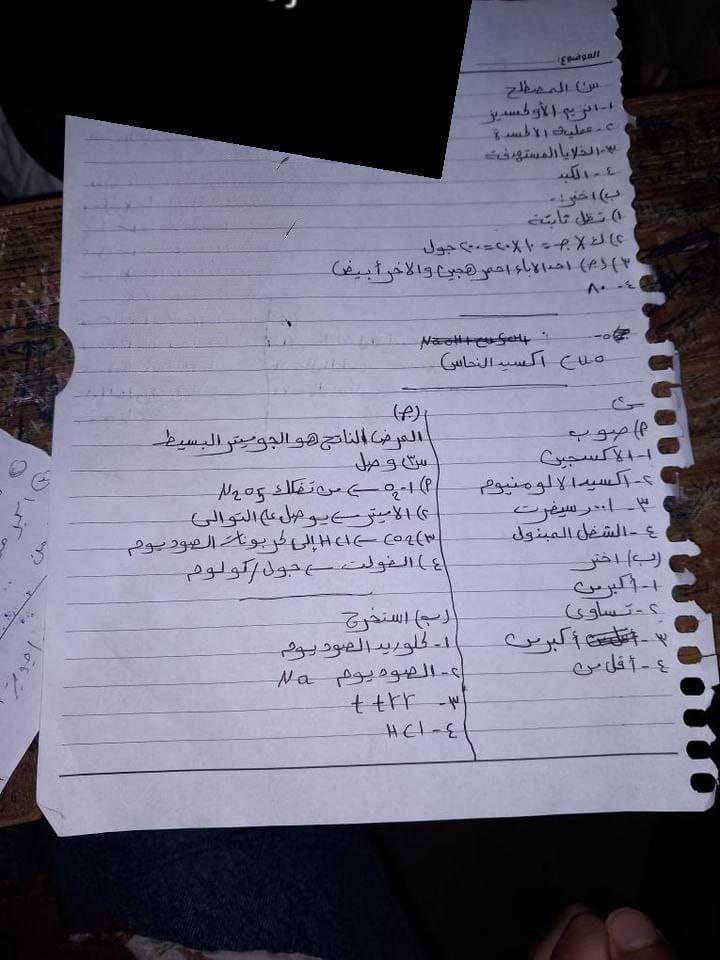 الموضوع:
س١ المصطلح
١- انزيم الأوكسديز
٢- عملية الأكسدة
٣- الخلايا المستهدفة
٤- الكبد
ب) اختر:-
١) تظل ثابتة
٢) ك × جـ = ١٠ × ٢٠ = ٢٠٠ جول
٣) (جـ) احد الآباء احمر هجين والاخر أبيض
٤- ٨٠
NaOH + CuSO4
CuO اكسيد النحاس
أ) صوب
١- الاكسجين
٢- اكسيد الالومنيوم
٣- رسيفرت
٤- الشغل المبذول
(ب) اختر
١- أكبر من
٢- تساوى
٣- أكبر من
٤- أقل من
(جـ)
العرض الناتج هو الجويتر البسيط
س٣ وصل
أ) ١- O2 ← من تفكك N2O5
٢) الاميتر ← يوصل على التوالى
٣) CO2 ← HCl إلى كربونات الصوديوم
٤) الفولت ← جول/كولوم
(ب) استخرج
١- كلوريد الصوديوم
٢- الصوديوم Na
٣- ttrr
٤- HCl